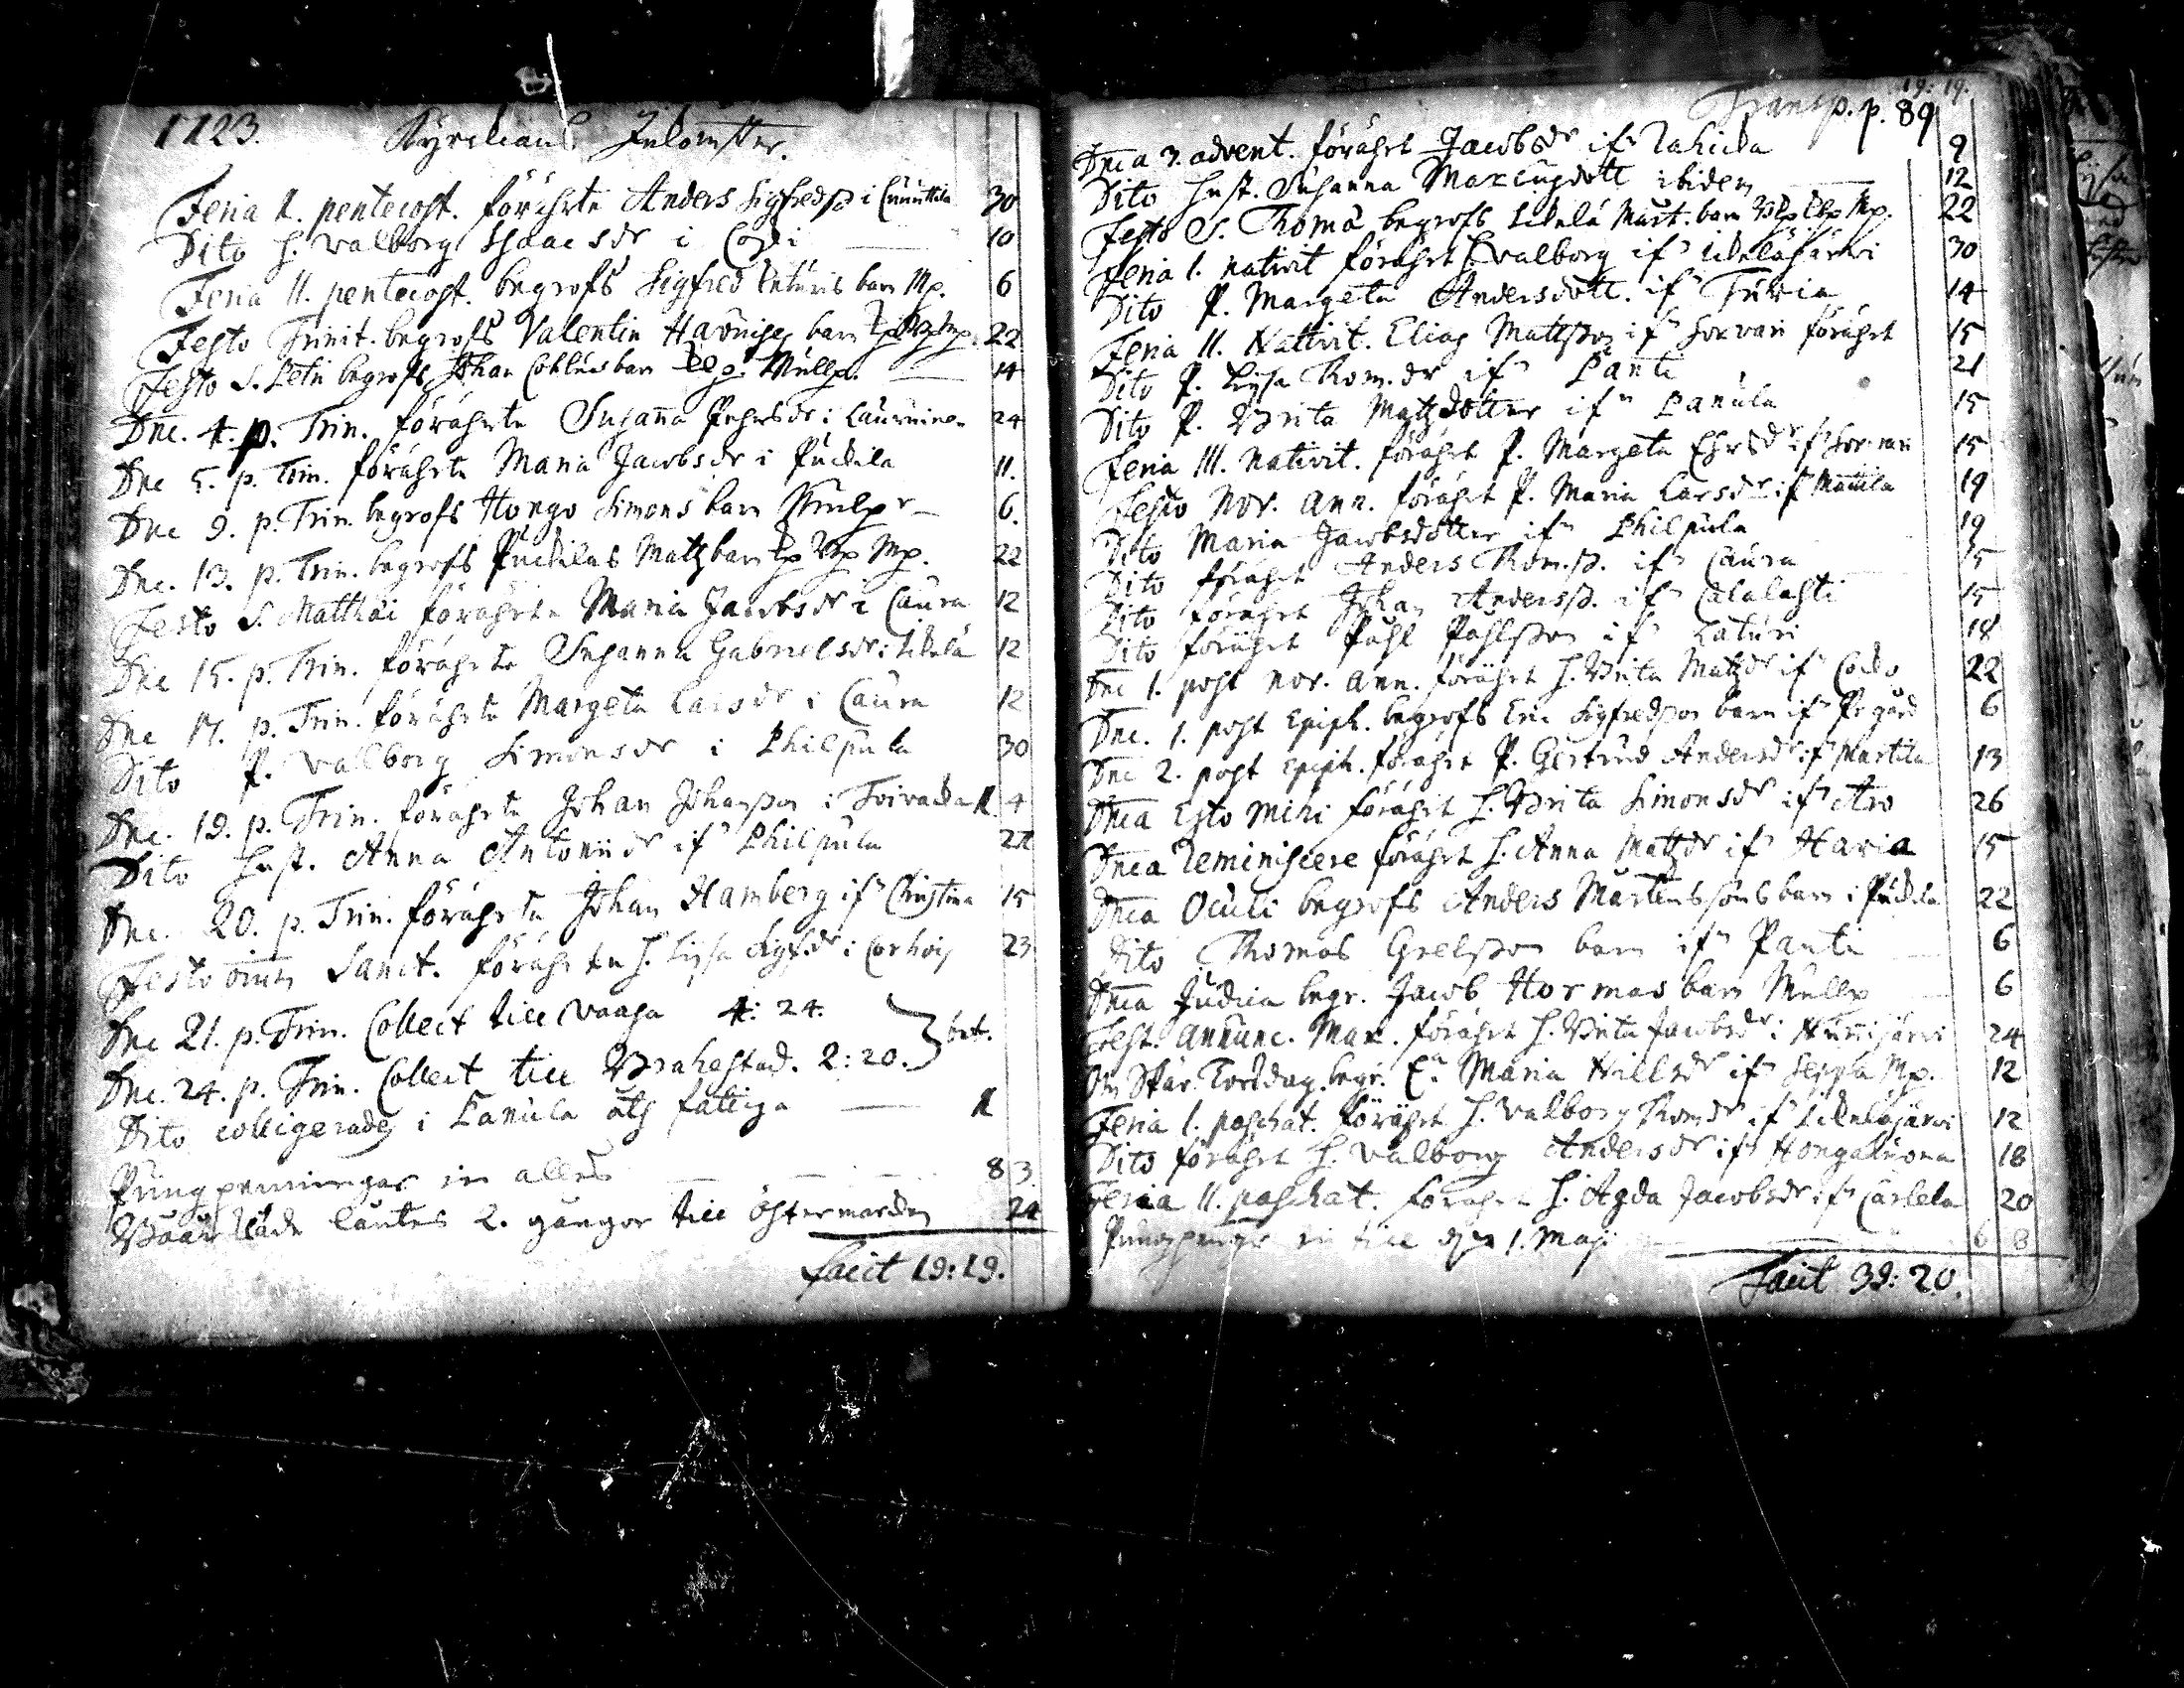 1723. Kyrckians Inkomster.
Feria 1. pentecost. förährte Anders Sigfredss i Cunttila 30
Dito H. Valborg Isaacsdr i Cossi 10
Feria 11. pentecost. begrofs Sigfred barn Mp. 6
Festo Trinit. begrofs Valentin barn 22
Festo S. Petri begrofs Johan barn 14
Dnc. 4. p. Trin. förährte Susanna Pehrsdr i 24
Dnc 5. p. Trin. förährte Maria Jacobsdr i Puckila 11.
Dnc 9. p. Trin. begrofs Hongo Simons barn 6.
Dnc. 13. p. Trin. begrofs Puckilas Matz barn Mp. 22
Festo S. Matthäi förährte Maria Jacobsdr i Caura 12
Dnc 15. p. Trin. förährte Susanna Gabrielsdr i Ickelä 12
Dnc 17. p. Trin. förährte Margeta Larsdr i Caura 12
Dito P. Valborg Simonsdr i Philpula 30
Dnc. 19. p. Trin. förährte Johan Johansson i 1. 4
Dito Hust. Anna Antoniidr ifr Philpula
Dnc. 20. p. Trin. förährte Johan Hamberg ifr Christina 15
Festo omn Sanct. förährte H. Lijsa Sigf.dr i 23
Dnc 21. p. Trin. Collect till Vaasa 4: 24.
Dnc. 24. p. Trin. Collect till Brahestad. 2: 20.
Dito colligerades i Lanula åth fattiga 1
Pungpenningar in alles 8 3.
läntes 2. gångor till Östermarcken 24
Facit 19: 19.
19: 19.
Transp. p. 89
Dnca 3. advent. förährt Jacobsdr ifr 9
Dito Hust. Susanna Marcusdott ibidem 12
Festo S. Thomä begrofs Ickelä Mårt. barn Mp. 22
Feria 1. nativit förährt H. Valborg ifr Ickeläjärvi 30
Dito P. Margeta Andersdott. ifr Turia 14
Feria 11. Nativit. Elias Mattsson ifr Sorvari förährt 15
Dito P. Lijsa Thom.dr ifr Panti 21
Dito P. Brita Matzdotter ifr Lanula 15
Feria 111. nativit. förährt P. Margeta ifr Sorvari 15
Festo nov. ann. förährt P. Maria Larsdr ifr Mattila 19
Dito Maria Jacobsdotter ifr Philpula 19
Dito förährt Anders Thom.ss. ifr Caura 15
Dito förährt Johan Anderss. ifr Calalahti 15
Dito förährt Påhl Påhlsson ifr Laturi 18
Dnc 1. post nov. ann. förährt H. Brita Matzdr ifr 22
Dnc. 1. post Epiph. begrofs Eric Sigfredsson barn ifr Pr.gård 6
Dnc 2. post Epiph. förährt P. Gertrud Andersdr ifr Martila 13
Dnca Esto mihi förährt H. Brita Simonsdr ifr Aro 26
Dnca Reminiscere förährt H. Anna Matzdr ifr Haria 15
Dnca Oculi begrofs Anders Mårtenssons barn i Puckila 22
Dito Thomas Grelsson barn ifr Panti 6
Dnca Judica begr. Jacob Hormas barn 6
Fest. annunc. Mar. förährt H. Brita Jacobsdr i Nurmijärvi 24
Om Skär Torsdag begr. Maria Nillsdr ifr Seppla Mp. 12
Feria 1. paschat. förährt H. Valborg Thomdr ifr Ickeläjärvi 12
Dito förährt H. Valborg Andersdr ifr Hongaluoma 18
Feria 11. paschat. förährt H. Agda Jacobsdr ifr 20
in till d. 1. Maji 6 8
Facit 39: 20.